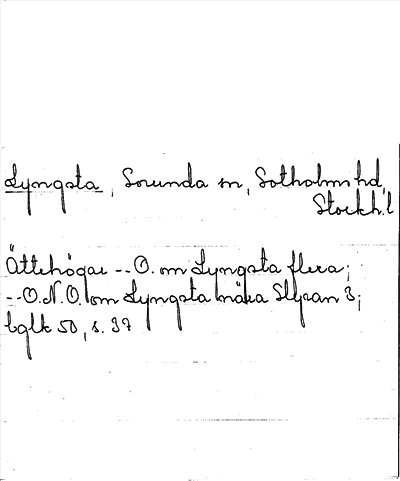 Lyngsta, Sorunda sn, Sotholms hd,
Stockh.l
Ättehögar -- O. om Lyngsta flera;
-- O.N.O. om Lyngsta nära Styran 3;
bglk 50, s. 37